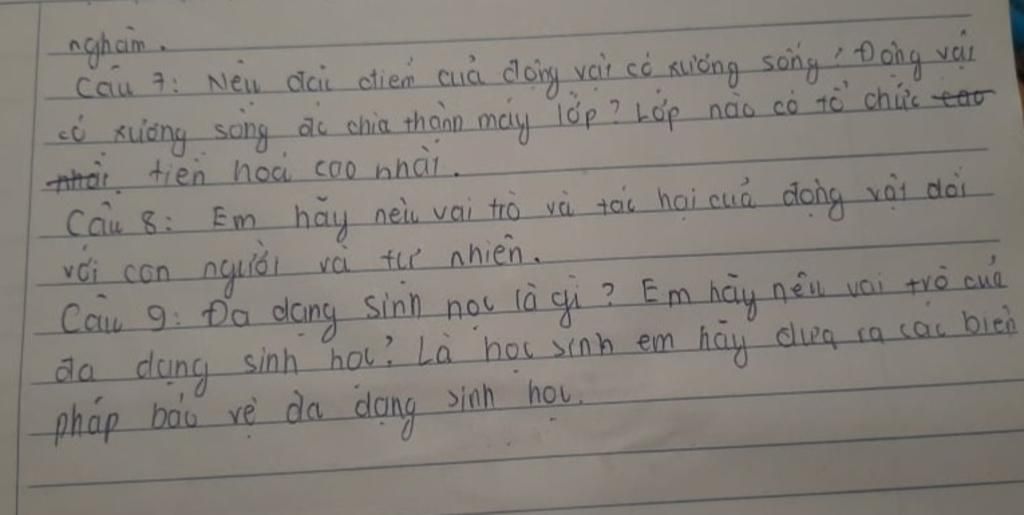 nghàm.
Câu 7: Nêu đặc điểm của động vật có xương sống? Động vật
có xương sống đc chia thành mấy lớp? Lớp nào có tổ chức cao
nhất tiến hoá cao nhất.
Câu 8: Em hãy nêu vai trò và tác hại của động vật đối
với con người và tự nhiên.
Câu 9: Đa dạng sinh học là gì? Em hãy nêu vai trò của
đa dạng sinh học? Là học sinh em hãy đưa ra các biện
pháp bảo vệ đa dạng sinh học.